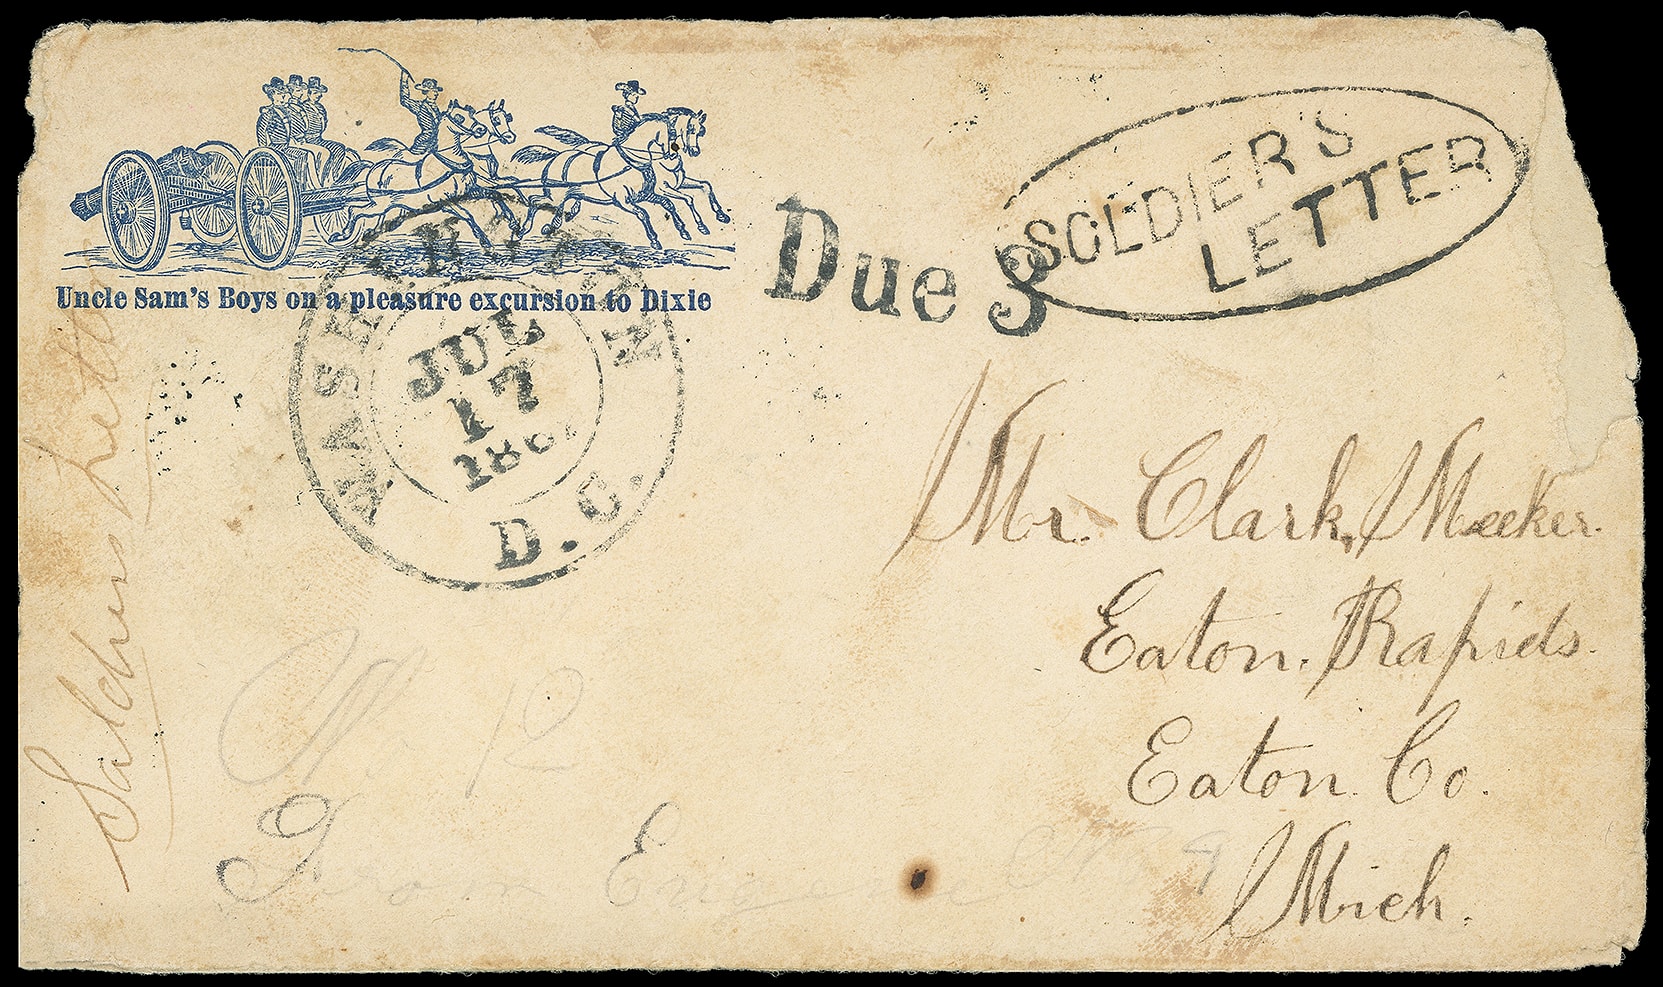 Uncle Sam's Boys on a pleasure excursion to Dixie
WASHINGTON
JUL
17
D. C.
Due 3
SOLDIER'S
LETTER
Mr. Clark, Meeker.
Eaton. Rapids.
Eaton. Co.
Mich.
N. 12
From Eugene